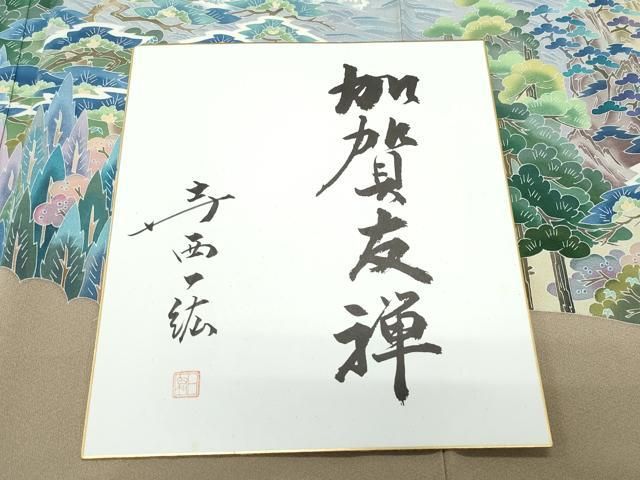 加賀友禅
寺西一紘